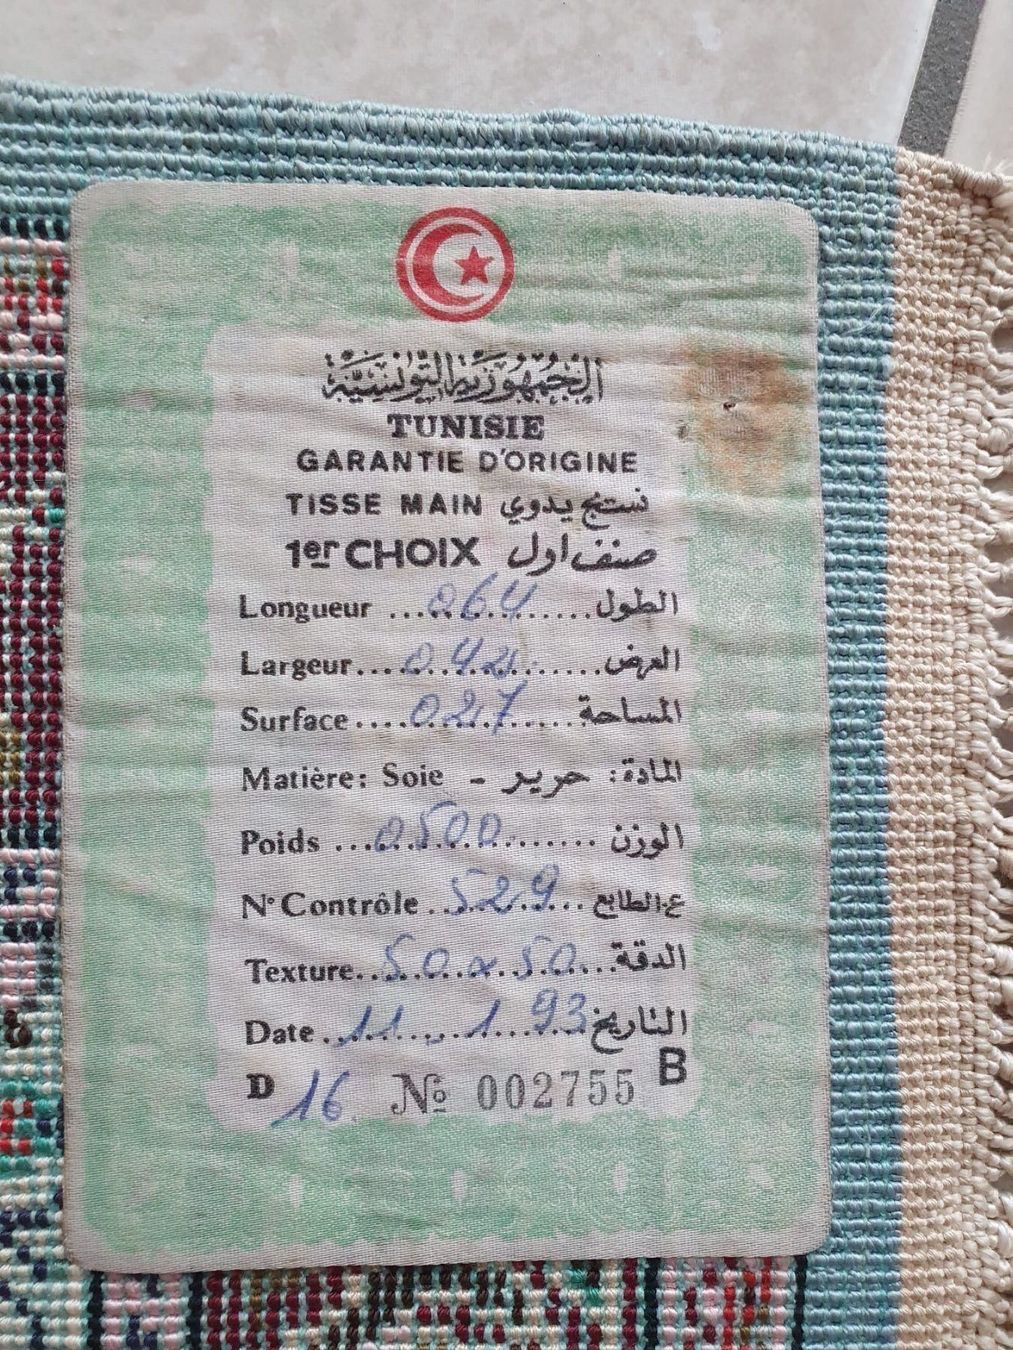 الجمهورية التونسية
TUNISIE
GARANTIE D'ORIGINE
TISSE MAIN نسيج يدوي
1er CHOIX صنف اول
Longueur ...064......الطول
Largeur...042......العرض
Surface....027......المساحة
Matière: Soie - حرير :المادة
Poids ...0500...... الوزن
Nº Contrôle..529... ع.الطابع
Texture..50x50...الدقة
Date.11..1.93التاريخ
D 16. Nº 002755 B